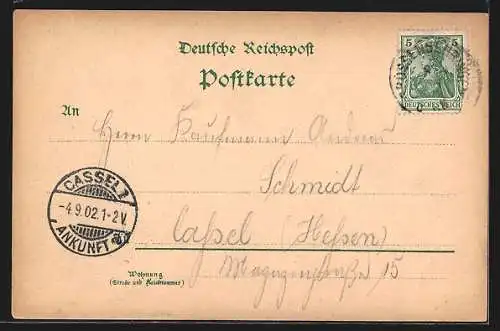 Deutsche Reichspost
Postkarte
5 5
DEUTSCHES REICH
An
Herrn Kaufmann Andreas
Schmidt
CASSEL 1
-4.9.02.1-2V.
ANKUNFT
Cassel (Hessen)
Wohnung
(Straße und Hausnummer)
15